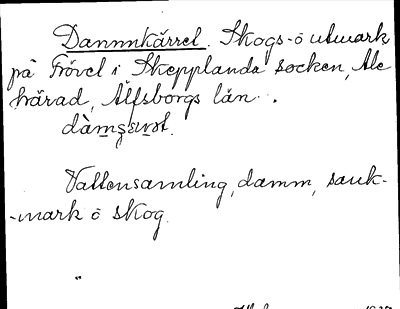 Dammkärret. Skogs- o utmark
på Frövet i Skepplanda socken, Ale
härad, Älfsborgs län.
Vattensamling, damm, sank-
-mark o skog.